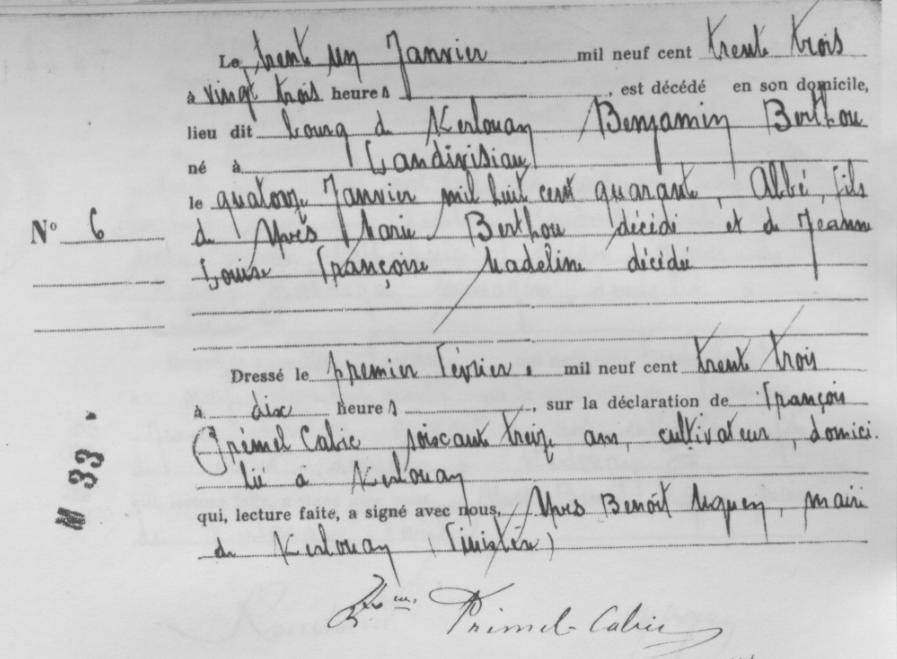 Le trente un Janvier mil neuf cent trente trois
à vingt trois heures, est décédé en son domicile,
lieu dit bourg de Kerlouan Benjamin Berthou
né à Landivisiau
le quatorze Janvier mil huit cent quarante, Abbé, fils
de Yves Marie Berthou décédé et de Jeanne
Louise Françoise Madeline décédée
N° 6
Dressé le premier Février, mil neuf cent trente trois
à dix heures, sur la déclaration de François
Prémel Cabic soixante treize ans, cultivateur, domici
lié à Kerlouan
M 33
qui, lecture faite, a signé avec nous, Yves Benoît, maire
de Kerlouan (Finistère)
Primel-Cabic